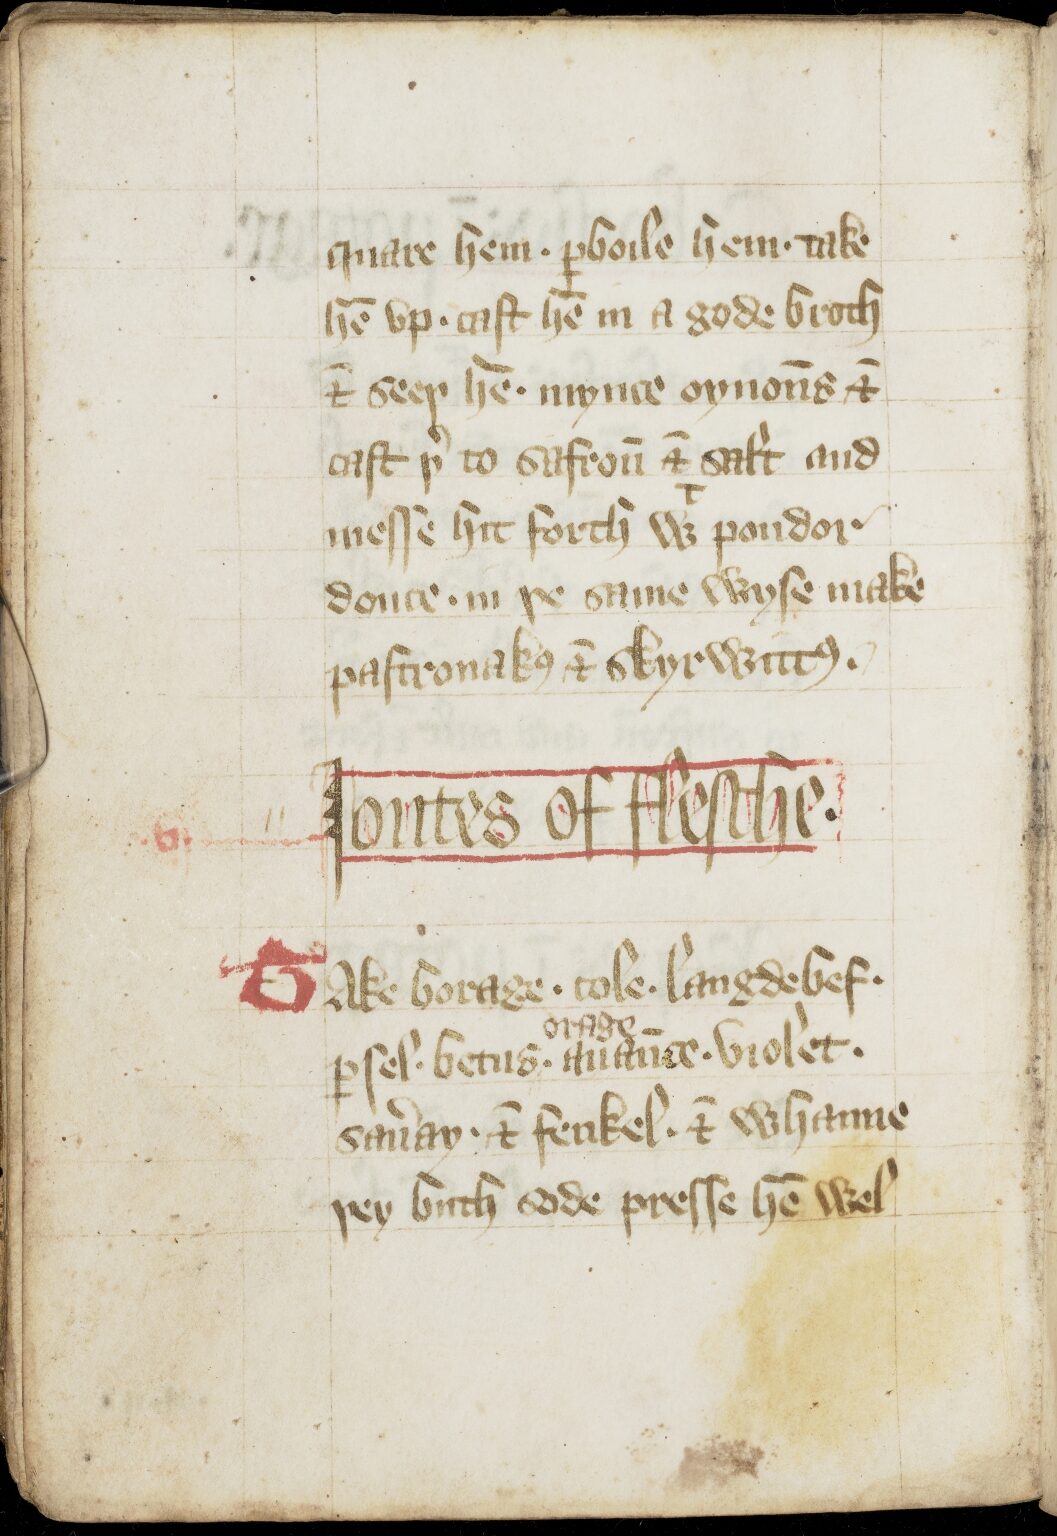 quare hem · ꝑboile hem · take
hē vp · cast hē in a gode broth
⁊ seeþ hē · mynce oynoūs ⁊
cast þ to safroū ⁊ salt and
messe hit forth wͭ poudor
douce · in þe same wyse make
pastronakꝰ ⁊ skyrwittꝰ ·
Iontes of flesche ·
·6·
TAke borage · cole · langdebef ·
orage
ꝑsel · betus · auaūce · violet ·
sau̾ay · ⁊ fenkel · ⁊ whanne
þey buth sode presse hē wel